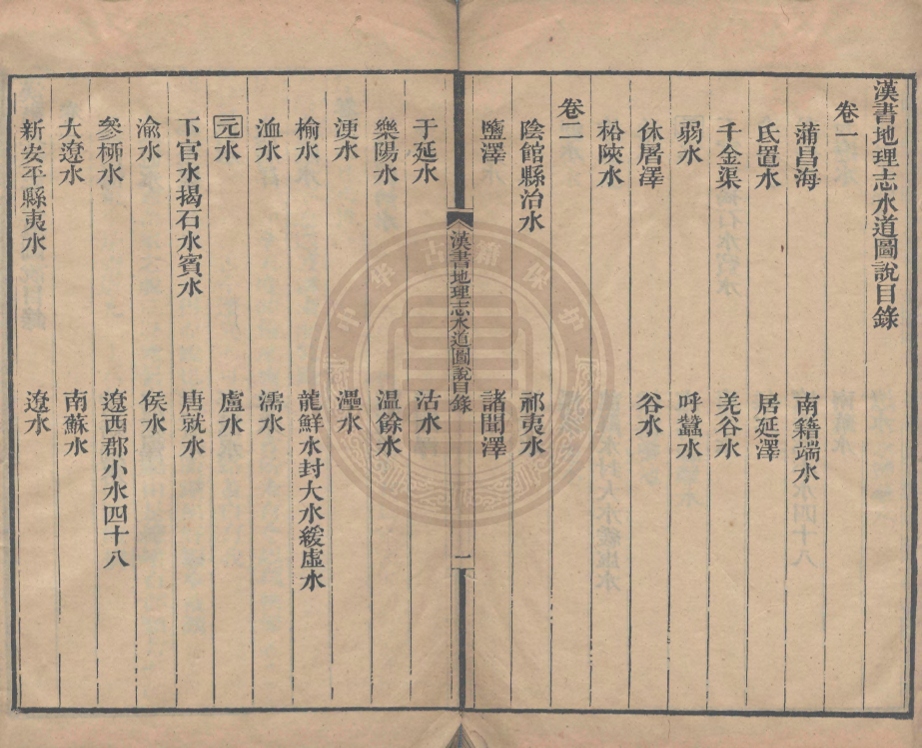 漢書地理志水道圖說目錄
卷一
蒲昌海 南籍端水
氐置水 居延澤
千金渠 羌谷水
弱水 呼蠶水
休屠澤 谷水
松陜水
卷二
陰館縣治水 祁夷水
鹽澤 諸聞澤
漢書地理志水道圖說目錄 一
于延水 沽水
樂陽水 温餘水
浭水 灅水
榆水 龍鮮水封大水緩虛水
洫水 濡水
元水 盧水
下官水揭石水賓水 唐就水
渝水 侯水
參柳水 遼西郡小水四十八
大遼水 南蘇水
新安平縣夷水 遼水
中华古籍保护